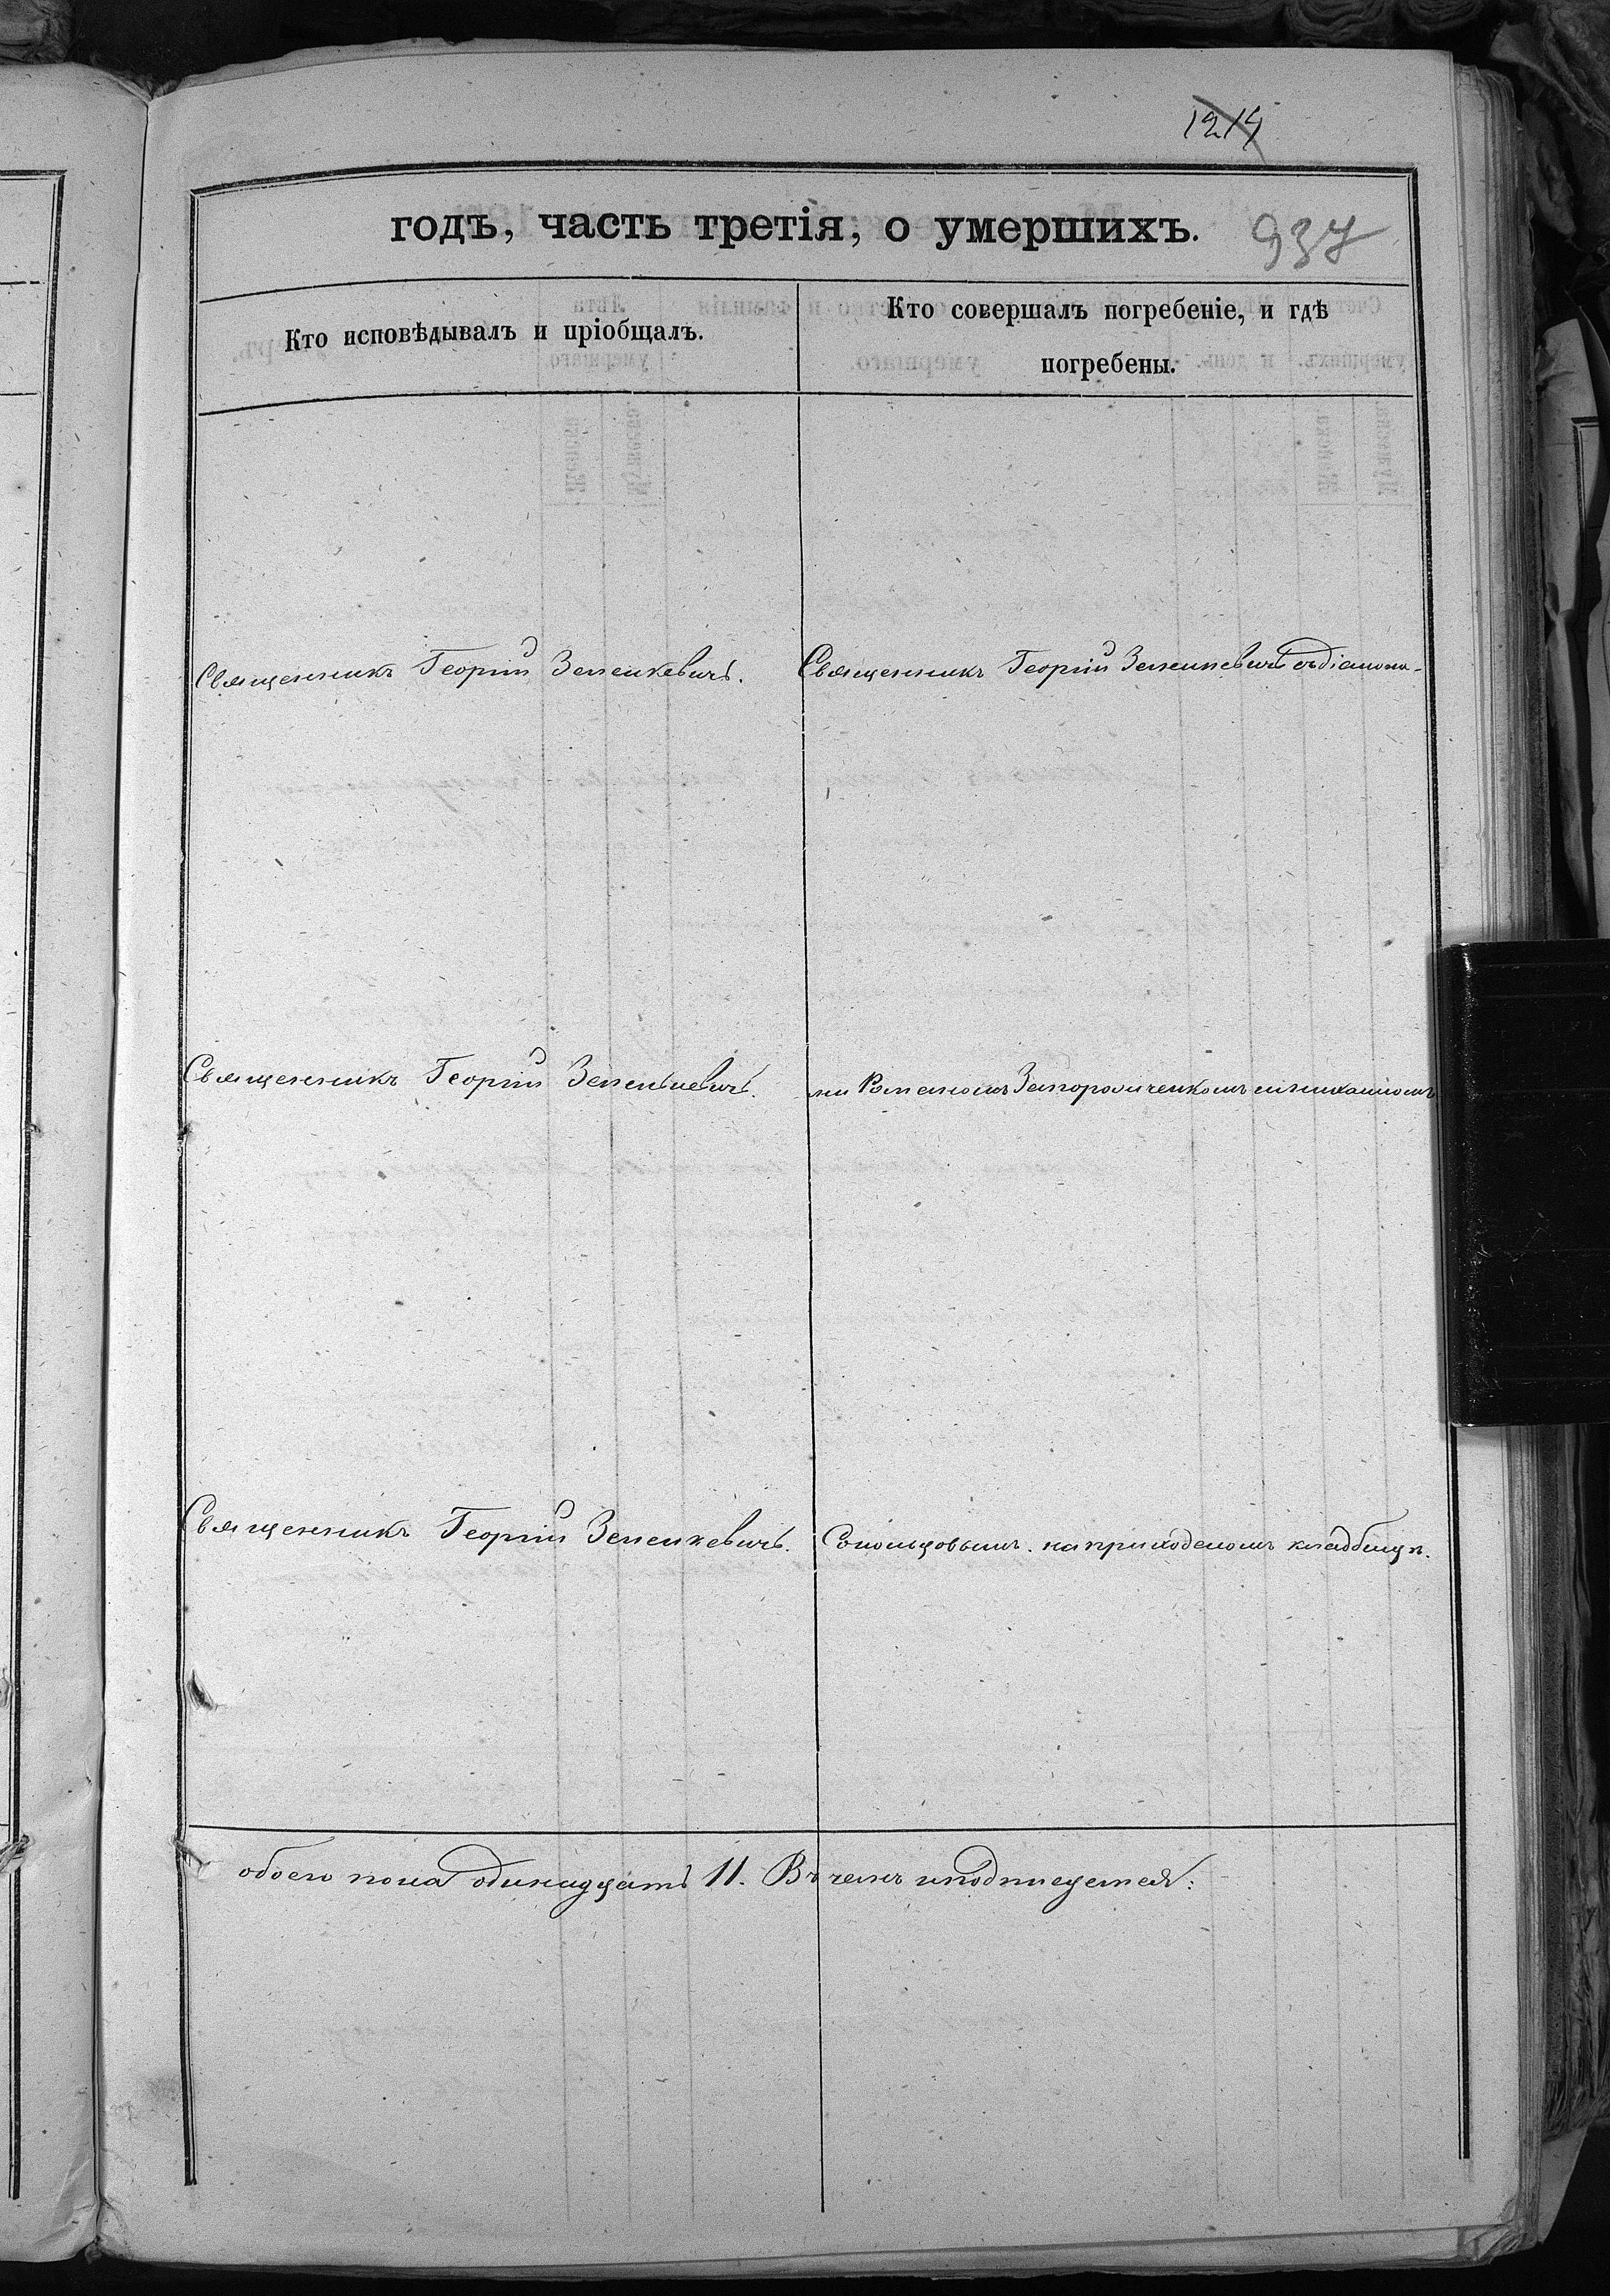 1214
годъ, часть третія, о умершихъ. 937
Кто исповѣдывалъ и пріобщалъ.
Кто совершалъ погребеніе, и гдѣ
погребены.
Священникъ Георгій Зеленкевичъ.
Священникъ Георгій Зеленкевичъ съ діакона-
Священникъ Георгій Зеленкевичъ.
ми Романомъ и
Священникъ Георгій Зеленкевичъ.
на приходскомъ кладбищѣ.
обоего пола одинадцать 11. Въ чемъ и подпишемся: